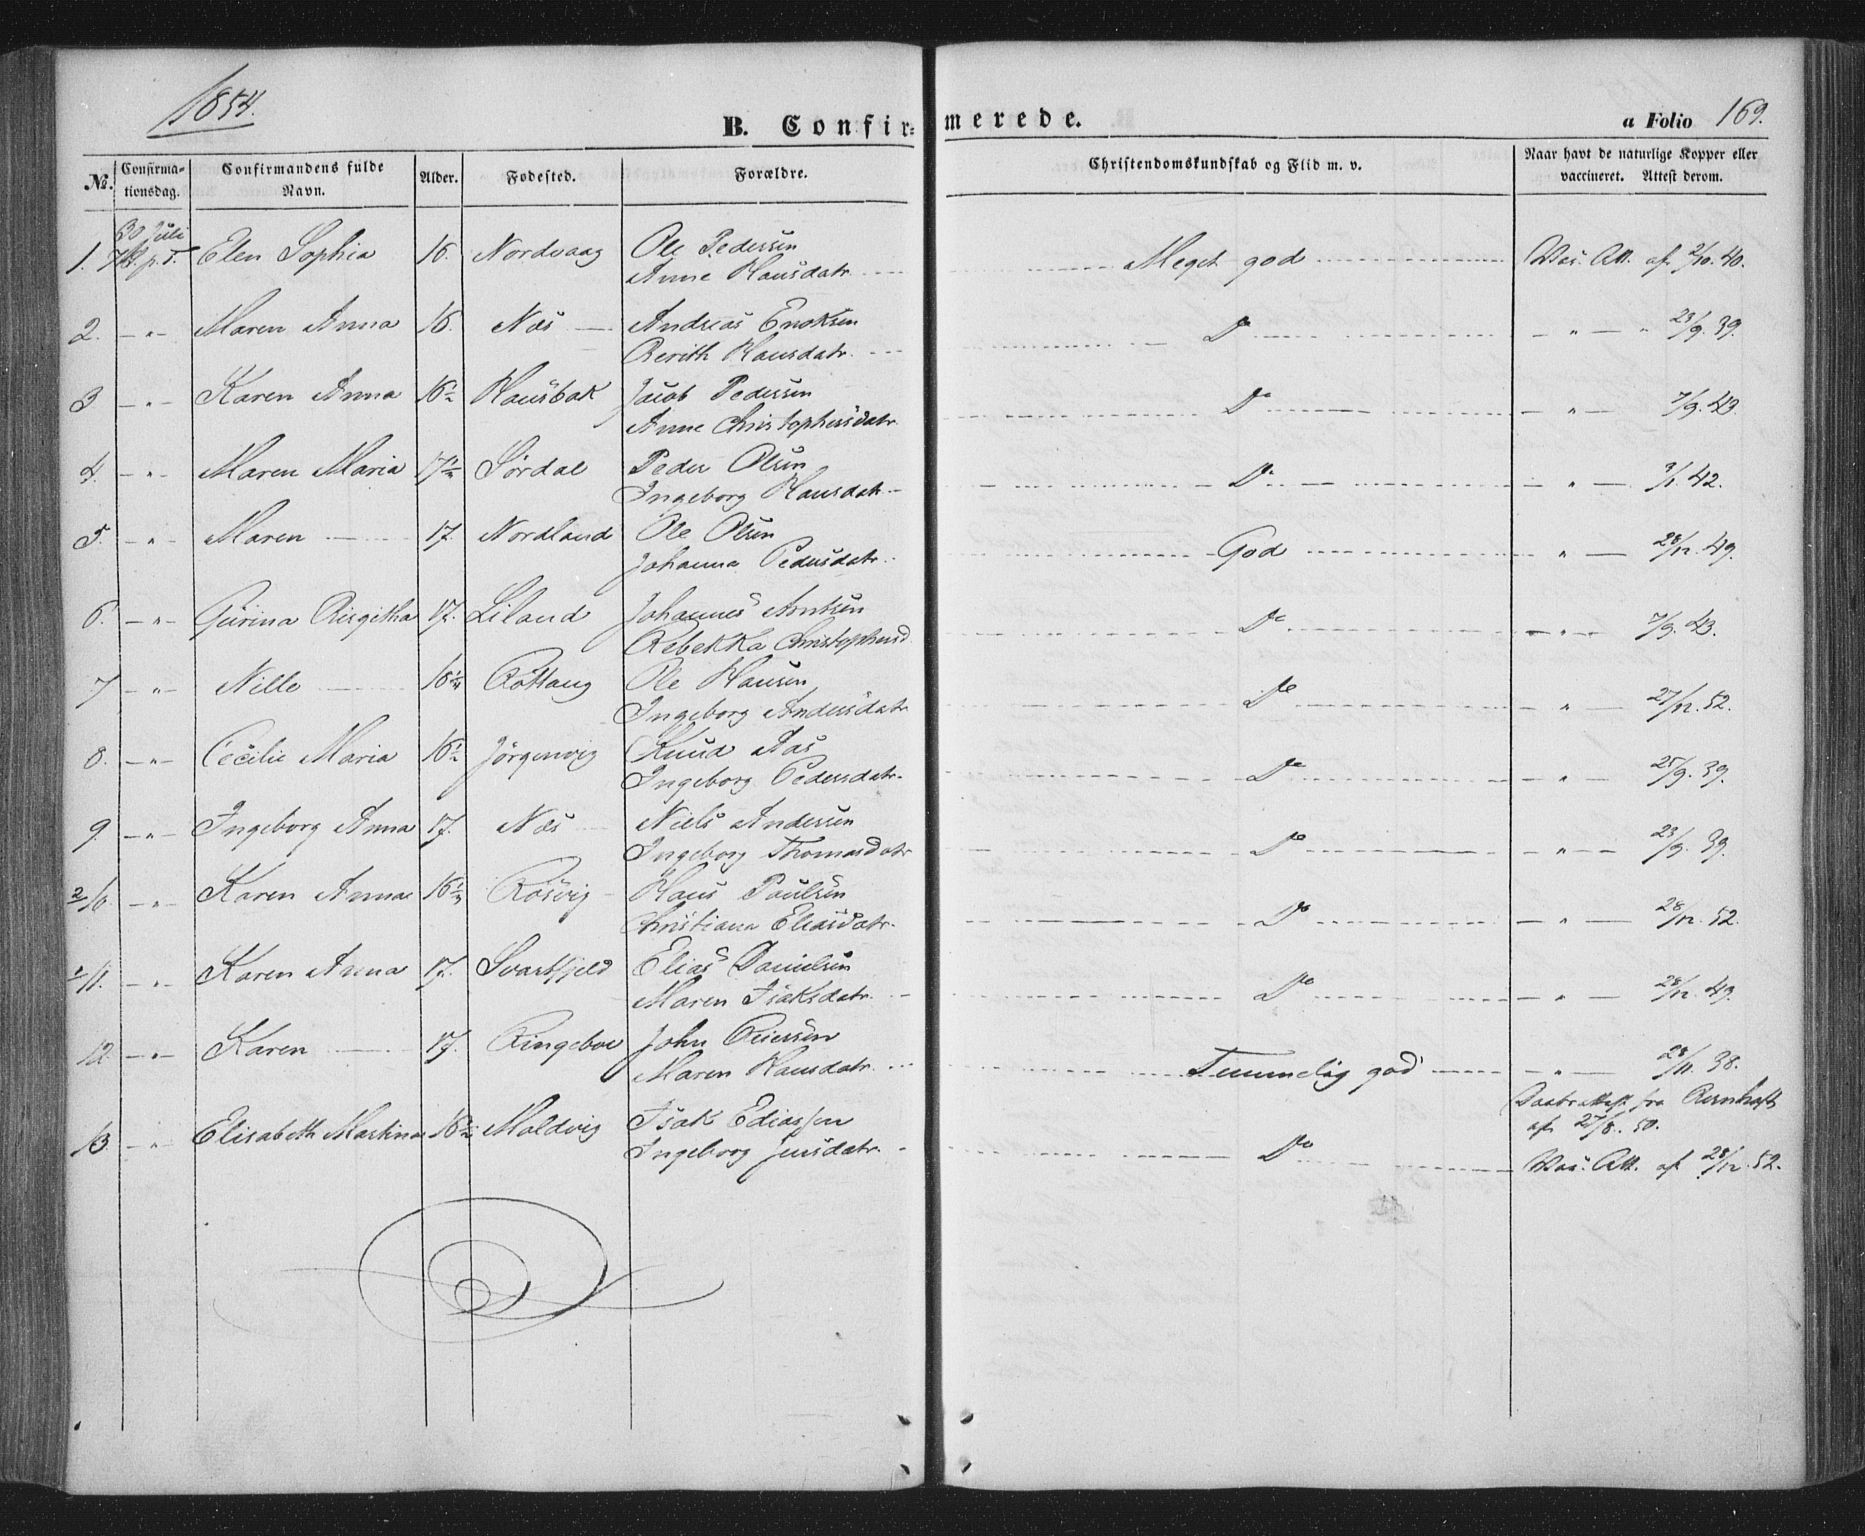 1854.
B. Confirmerede.
a Folio 169.
№. Confirmationsdag. Confirmandens fulde Navn. Alder. Fødested. Forældre. Christendomskundskab og Flid m. v. Naar havt de naturlige Kopper eller vaccineret. Attest derom.
30 Juli
1. Elen Sophia 16. Nordvaag Ole Pedersen Meget god Vac. Att. af 2/10. 40.
Anne Hansdatr.
2. - " - Maren Anna 16. Næs Andreas Enoksen Do - " - " 23/9. 39.
Berith Hansdatr.
3 - " - Karen Anna 16½ Hausbak Jacob Pedersen Do - " - 7/9. 43.
Anne Christophersdatr
4. - " - Maren Maria 17½ Sørdal Peder Olsen Do - " - 3/1. 42.
Ingeborg Hansdatr
5. - " - Maren 17. Nordland Ole Olsen God " - 28/12. 49.
Johanna Pedersdatr.
6. - " - Gurina Birgitha 17. Liland Johannes Arntsen Do - " - 7/9. 43.
Rebekka Christophersd.
7 - " - Nille 16¼ Røttang Ole Hansen Do - " - 27/12. 52.
Ingeborg Andersdatr
8. - " - Cecilie Maria 16½ Jørgenvig Knud Aas Do " 25/9. 39.
Ingeborg Pedersdatr.
9. - " - Ingeborg Anna 17. Næs Niels Andersen Do - " - 23/9. 39.
Ingeborg Thomasdatr
2/10. - " - Karen Anna 16½ Røsvig Hans Paulsen Do - " - 28/12. 52.
Christiana Eliasdatr.
1/11. - " - Karen Anna 17. Svartfjeld Elias Danielsen Do - " - 28/12. 49.
Maren Isaksdatr.
12. - " - Karen 17. Ringeboe John Maren Hansdatr. Temmelig god " - 28/11. 38.
13. " Elisabeth Martina 16½ Moldvig Isak Ediassen Do Daabsattest fra
af 27/8. 50.
Ingeborg Jensdatr. Vac. Att. af 28/12. 52.